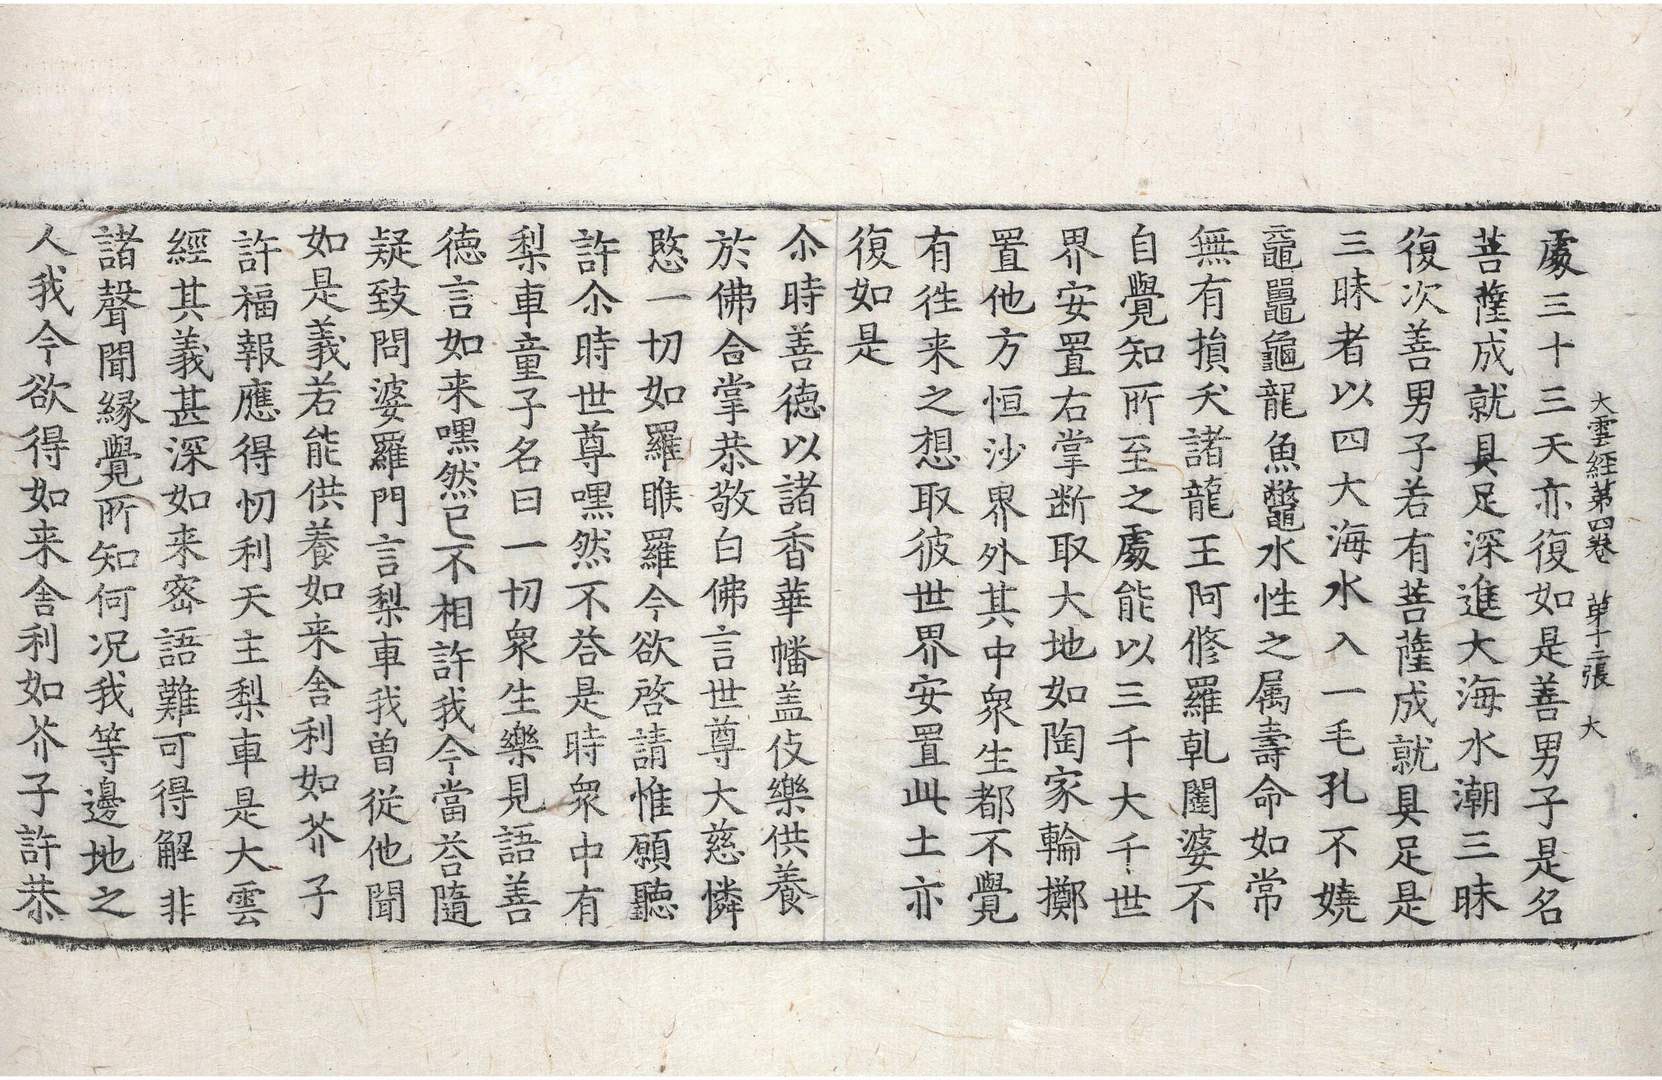 大雲經第四卷　第十二張　大
處三十三天亦復如是善男子是名
菩薩成就具足深進大海水潮三昧
復次善男子若有菩薩成就具足是
三昧者以四大海水入一毛孔不娆
黿鼉龜龍魚鼈水性之属壽命如常
無有損夭諸龍王阿修羅乹闥婆不
自覺知所至之處能以三千大千世
界安置右掌断取大地如陶家輪擲
置他方恒沙界外其中衆生都不覺
有徃来之想取彼世界安置此土亦
復如是
尒時善德以諸香華幡盖伎樂供養
於佛合掌恭敬白佛言世尊大慈憐
愍一切如羅睺羅今欲啓請惟願聽
許尒時世尊嘿然不荅是時衆中有
梨車童子名曰一切衆生樂見語善
德言如来嘿然已不相許我今當荅隨
疑致問婆羅門言梨車我曽從他聞
如是義若能供養如来舍利如芥子
許福報應得忉利天主梨車是大雲
經其義甚深如来宻語難可得解非
諸聲聞縁覺所知何况我等邊地之
人我今欲得如来舍利如芥子許恭